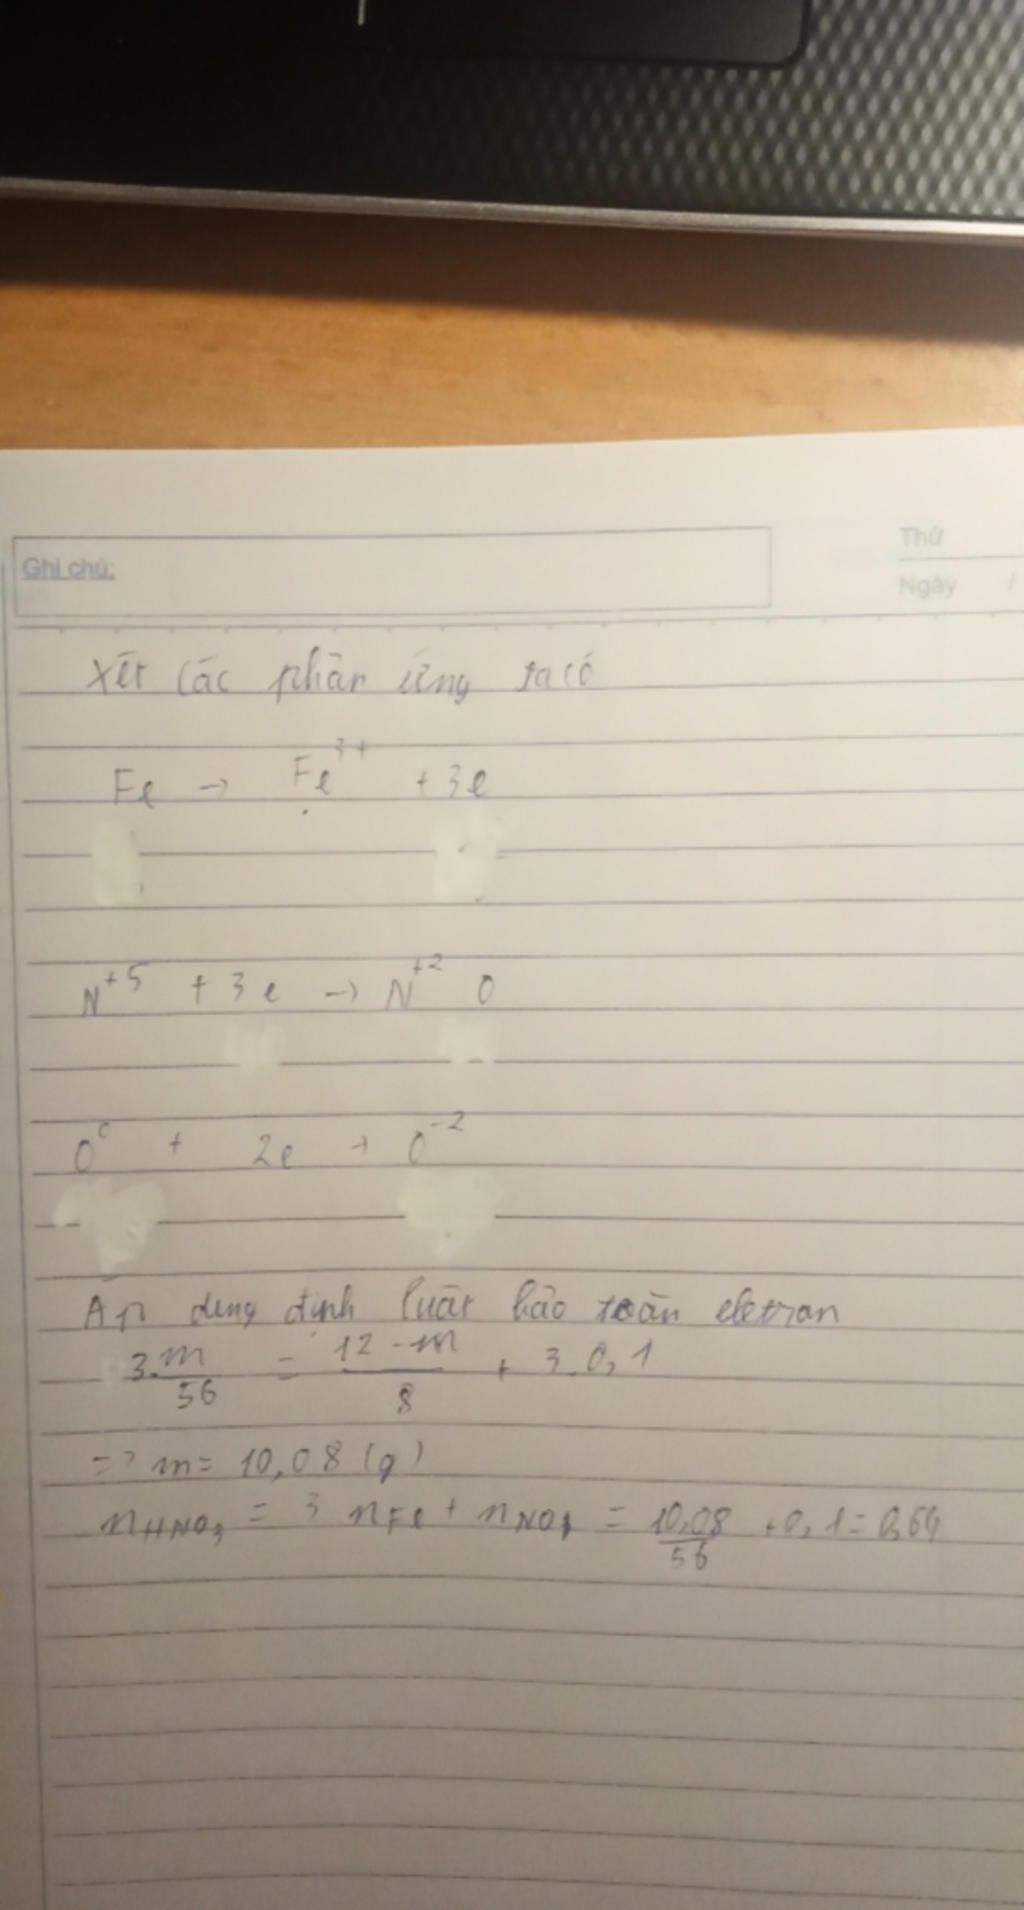 Ghi chú:
Thứ
Ngày /
Xét các phản ứng ta có
Fe → Fe³⁺ + 3e
N⁺⁵ + 3e → N⁺² O
O⁰ + 2e → O⁻²
Áp dụng định luật bảo toàn eletron
3.m/56 = 12-m/8 + 3.0,1
=> m = 10,08 (g)
nHNO₃ = 3 nFe + nNO = 10,08/56 + 0,1 = 0,64